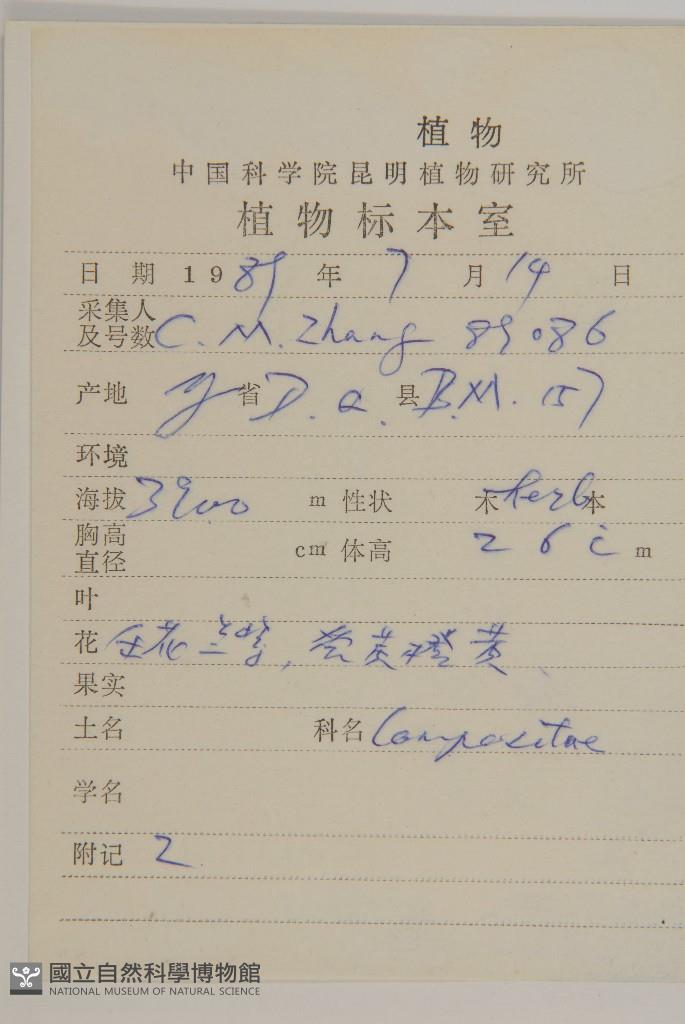 植物
中国科学院昆明植物研究所
植物标本室
日期 1989 年 7 月 14 日
采集人
及号数 C. M. Zhang 89086
产地 Y 省 D. Q. 县 B.M. 157
环境
海拔 3900 m 性状 木 herb 本
胸高
直径 cm 体高 26 c m
叶
花 兰紫, 黄橙黄
果实
土名 科名 Compositae
学名
附记 2
國立自然科學博物館
NATIONAL MUSEUM OF NATURAL SCIENCE